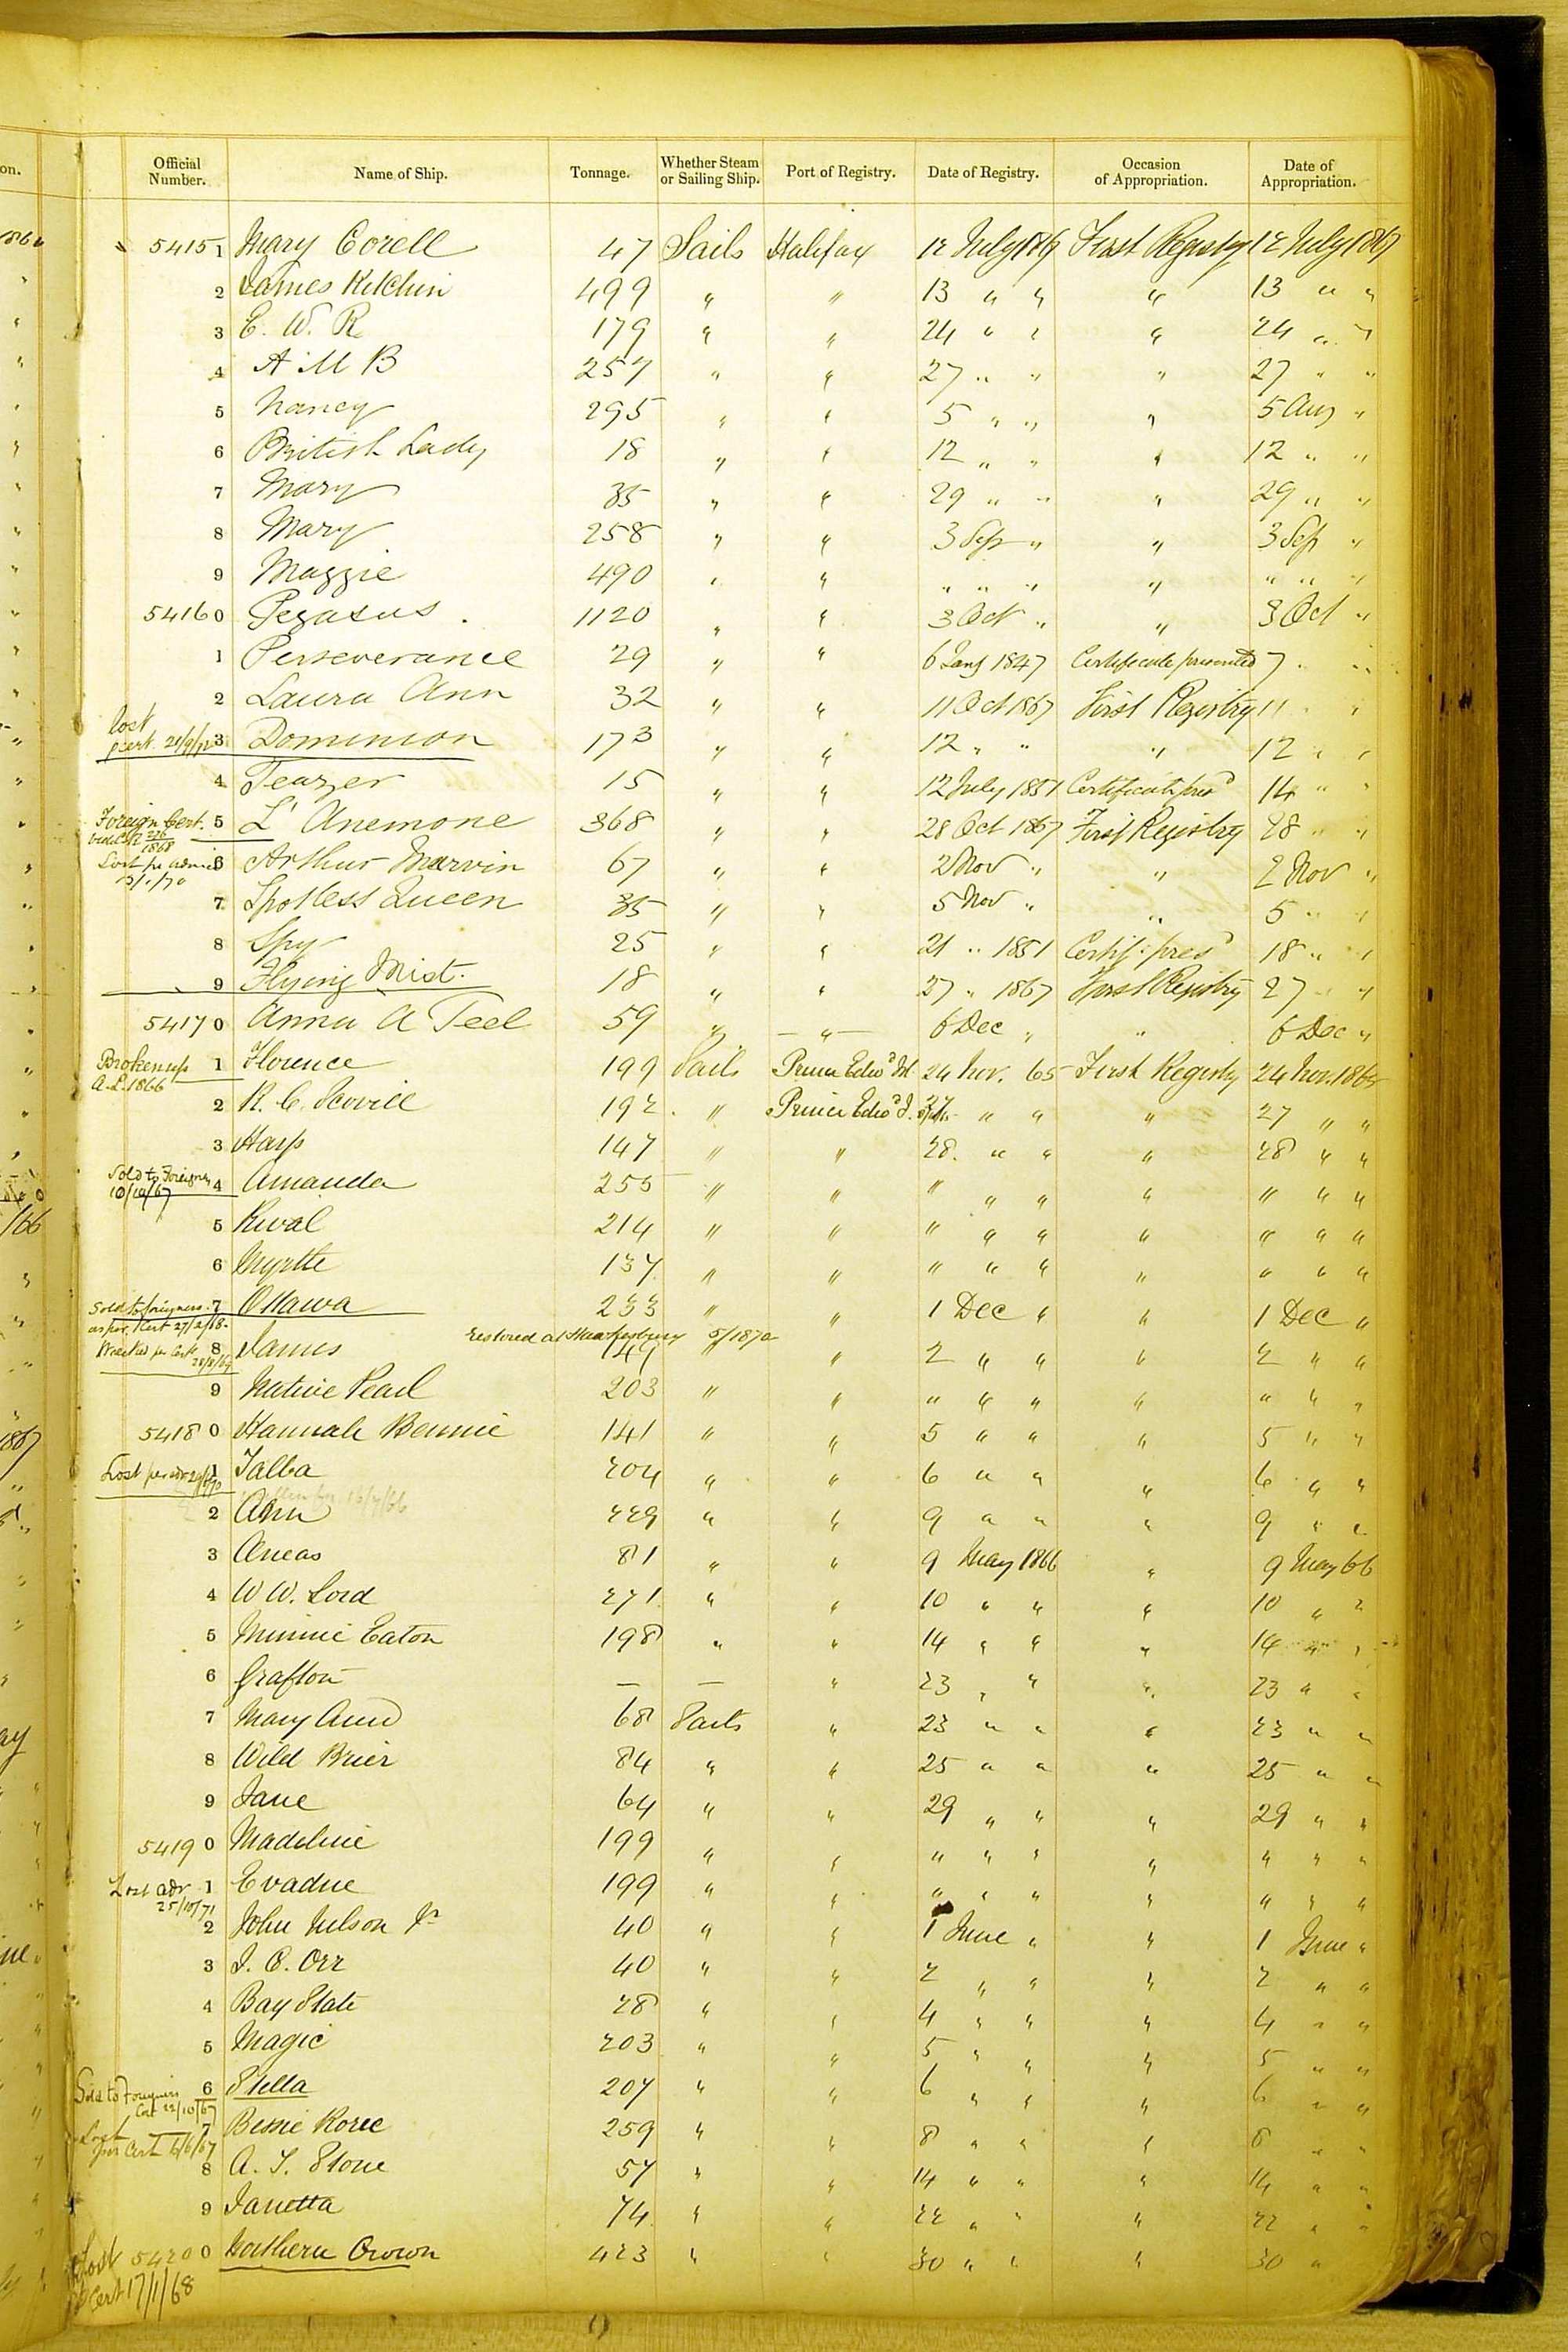 Official Number. Name of Ship. Tonnage. Whether Steam or Sailing Ship. Port of Registry. Date of Registry. Occasion of Appropriation. Date of Appropriation.
54151 Mary Corell 47 Sails Halifax 12 July 1867 First Registry 12 July 1867
2 James Kitchin 499 " " 13 " " " 13 " "
3 E. W. R 179 " " 24 " " " 24 " "
4 A M B 257 " " 27 " " " 27 " "
5 Nancy 295 " " 5 " " " 5 Aug "
6 British Lady 18 " " 12 " " " 12 " "
7 Mary 35 " " 29 " " " 29 " "
8 Mary 258 " " 3 Sep " " 3 Sep "
9 Maggie 490 " " " " " " " " "
54160 Pegasus. 1120 " " 3 Oct " " 3 Oct "
1 Perseverance 29 " " 6 1847 Certificate presented 7 " "
2 Laura Ann 32 " " 11 Oct 1867 First Registry 11 " "
lost
3 Dominion 173 " " 12 " " " 12 " "
4 Teazer 15 " " 12 July 1851 Certificate pres^d 14 " "
Foreign Cert. 5 L' Anemone 368 " " 28 Oct 1867 First Registry 28 " "
1868
6 Arthur Marvin 67 " " 2 Nov " " 2 Nov "
7 Spotless Queen 35 " " 5 Nov " " 5 " "
8 Spy 25 " " 21 " 1851 Certif. pres^d 18 " "
9 Flying Mist. 18 " " 27 " 1867 First Registry 27 " "
54170 Anna A Teel 59 " " 6 Dec " " 6 Dec "
Broken up 1 Florence 199 Sails Prince Edw^d Isl 24 Nov. 65 First Registry 24 Nov. 1865
A.L. 1866
2 R. C. Scovill 192 " Prince Edw^d I. 27 " " " 27 " "
3 Harp 147 " " 28. " " " 28 " "
Sold to Foreigners 4 Amanda 255 " " " " " " " " "
10/10/67
5 Rival 214 " " " " " " " " "
6 Myrtle 137 " " " " " " " " "
Sold to foreigners. 7 Ottawa 233 " " 1 Dec " " 1 Dec "
as per Cert 27/2/68.
restored at Hawkesbury 5/1870
Wrecked per Cert 8 James 149 " " 2 " " " 2 " "
9 Native Pearl 203 " " " " " " " " "
54180 Hannah Bennie 141 " " 5 " " " 5 " "
Lost per 1 Talba 204 " " 6 " " " 6 " "
2 Ann 229 " " 9 " " " 9 " "
3 Aneas 81 " " 9 May 1866 " 9 May 66
4 W W. Lord 271 " " 10 " " " 10 " "
5 Minnie Eaton 198 " " 14 " " " 14 " "
6 Grafton — — " 23 " " " 23 " "
7 Mary Ann 68 Sails " 23 " " " 23 " "
8 Wild Brier 84 " " 25 " " " 25 " "
9 Jane 64 " " 29 " " " 29 " "
54190 Madeline 199 " " " " " " " " "
Lost adv 1 Evadne 199 " " " " " " " " "
25/10/71
2 John Nelson Jr 40 " " 1 June " " 1 June "
3 J. C. Orr 40 " " 2 " " " 2 " "
4 Bay State 28 " " 4 " " " 4 " "
5 Magic 203 " " 5 " " " 5 " "
Sold to Foreigners 6 Stella 207 " " 6 " " " 6 " "
Cert 22/10/67
Lost 7 Bessie Rorie 259 " " 8 " " " 8 " "
per Cert 6/6/67
8 A. J. Stone 57 " " 14 " " " 14 " "
9 Janetta 74 " " 22 " " " 22 " "
Lost 54200 Northern Crown 423 " " 30 " " " 30 "
Cert 17/1/68